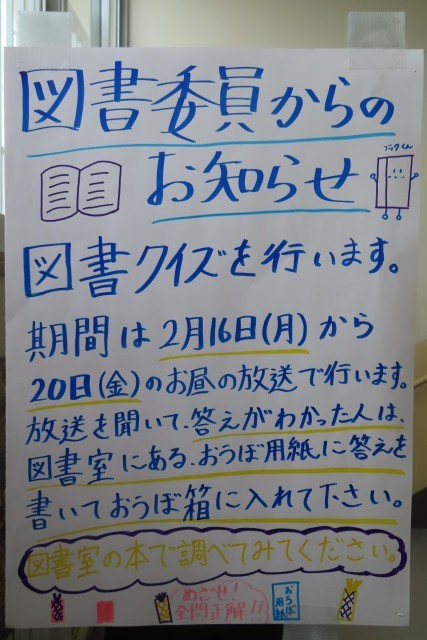 図書委員からの
お知らせ
図書クイズを行います。
期間は2月16日(月)から
20日(金)のお昼の放送で行います。
放送を聞いて、答えがわかった人は、
図書室にある、おうぼ用紙に答えを
書いておうぼ箱に入れて下さい。
図書室の本で調べてみてください。
めざせ!
全問正解!!
おうぼ
用紙